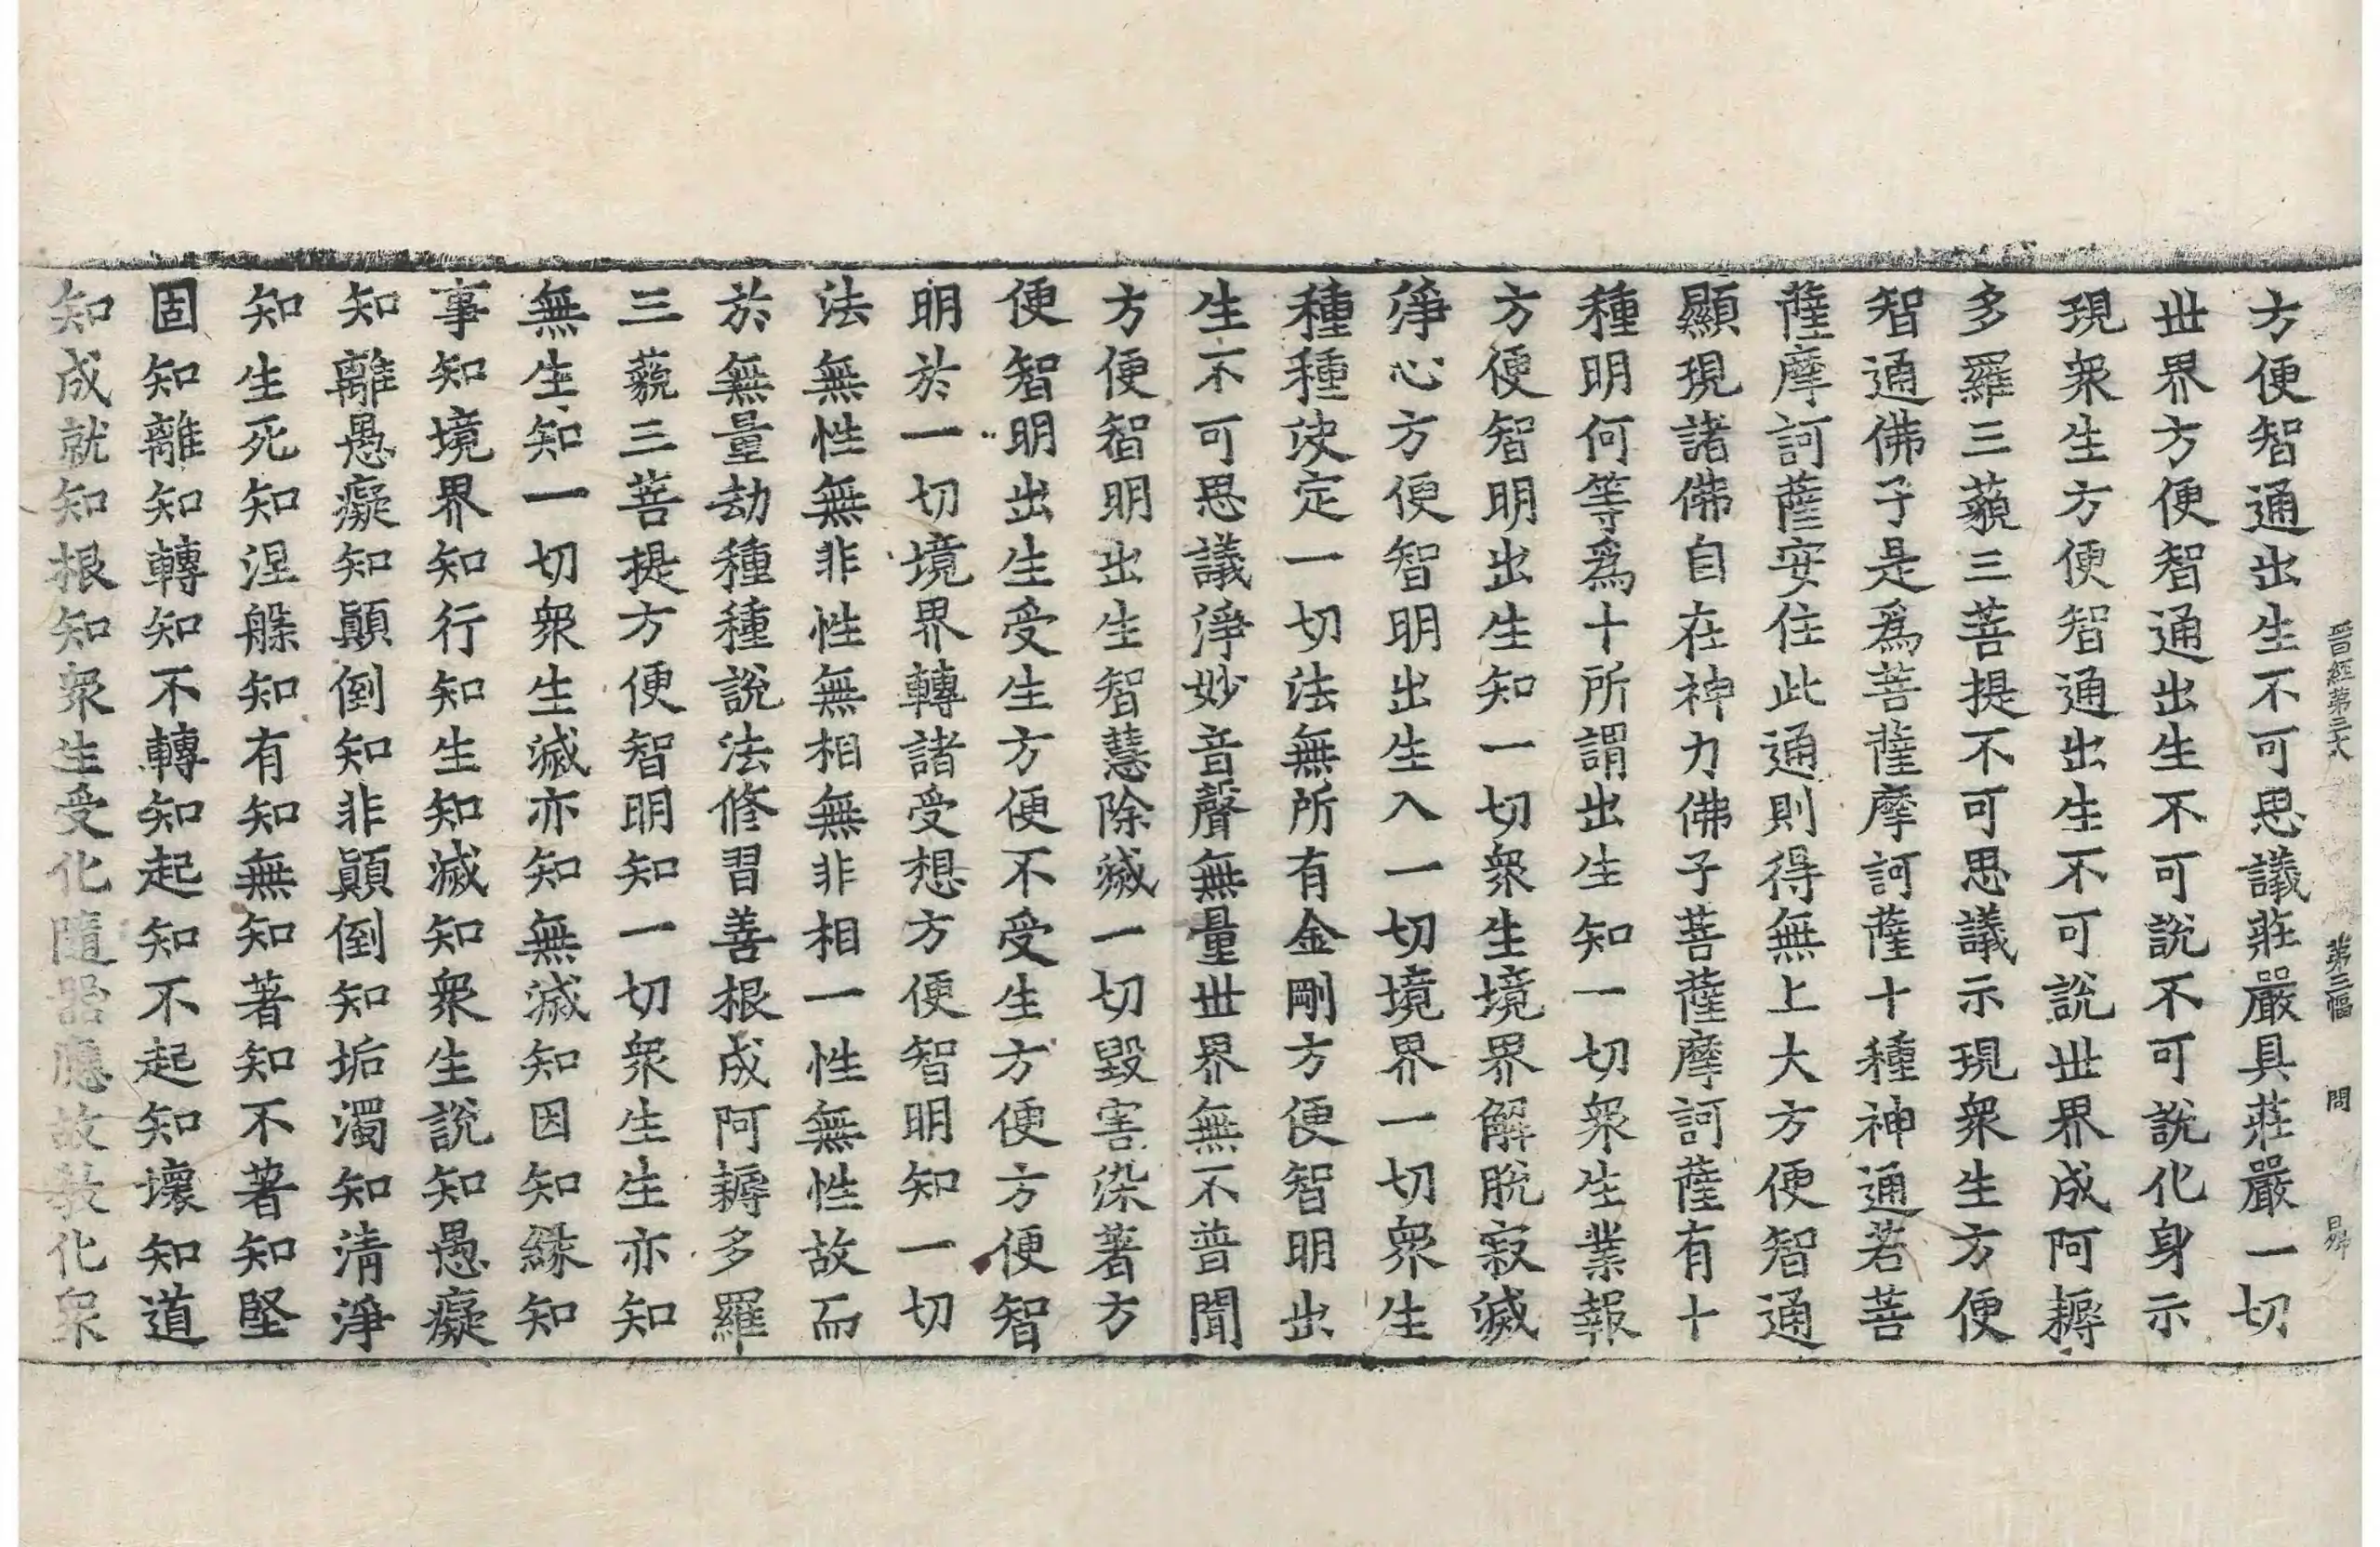 晉經第三十八 第三幅 問
方便智通出生不可思議莊嚴具莊嚴一切
世界方便智通出生不可說不可說化身示
現衆生方便智通出生不可說世界成阿耨
多羅三藐三菩提不可思議示現衆生方便
智通佛子是爲菩薩摩訶薩十種神通若菩
薩摩訶薩安住此通則得無上大方便智通
顯現諸佛自在神力佛子菩薩摩訶薩有十
種明何等爲十所謂出生知一切衆生業報
方便智明出生知一切衆生境界解脫寂滅
淨心方便智明出生入一切境界一切衆生
種種决定一切法無所有金剛方便智明出
生不可思議淨妙音聲無量世界無不普聞
方便智明出生智慧除滅一切毀害染著方
便智明出生受生方便不受生方便方便智
明於一切境界轉諸受想方便智明知一切
法無性無非性無相無非相一性無性故而
於無量劫種種說法修習善根成阿耨多羅
三藐三菩提方便智明知一切衆生生亦知
無生知一切衆生滅亦知無滅知因知緣知
事知境界知行知生知滅知衆生說知愚癡
知離愚癡知顚倒知非顚倒知垢濁知清淨
知生死知涅槃知有知無知著知不著知堅
固知離知轉知不轉知起知不起知壞知道
知成就知根知衆生受化隨器應故教化衆